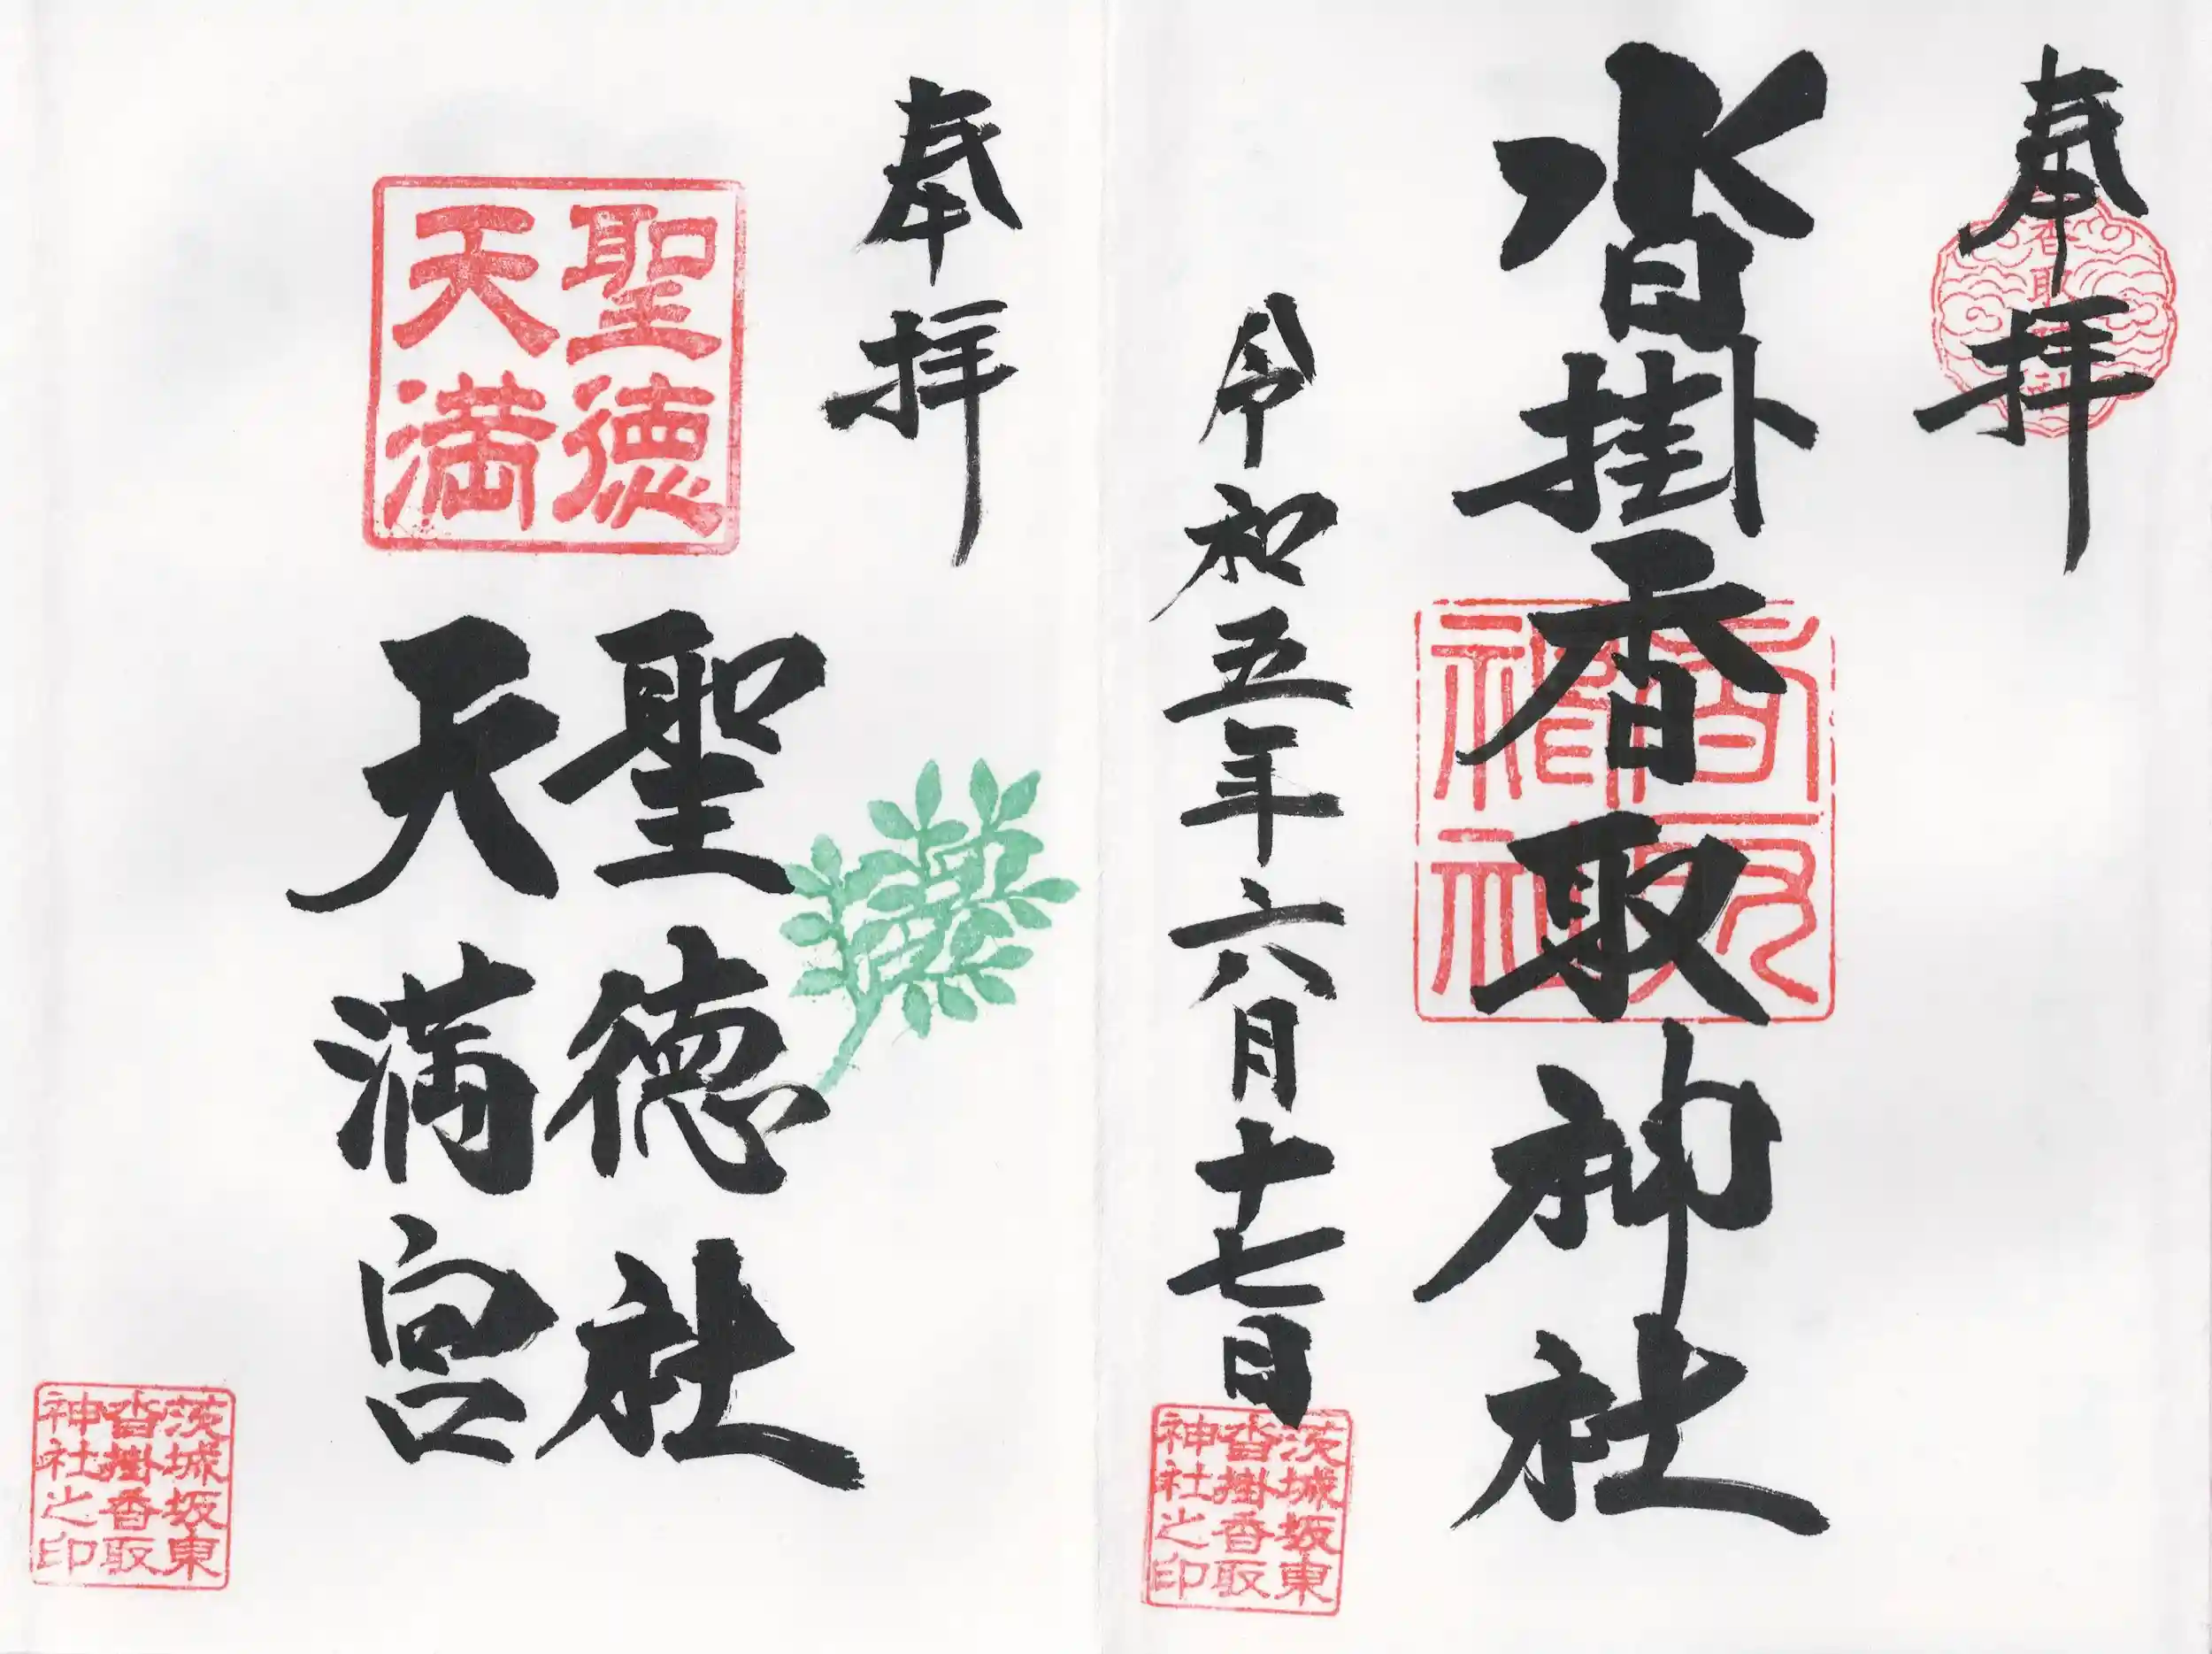 奉拝
香取
沓掛香取神社
香取
神社
令和五年六月十七日
茨城坂東
沓掛香取
神社之印
奉拝
聖徳
天満
聖徳社
天満宮
茨城坂東
沓掛香取
神社之印